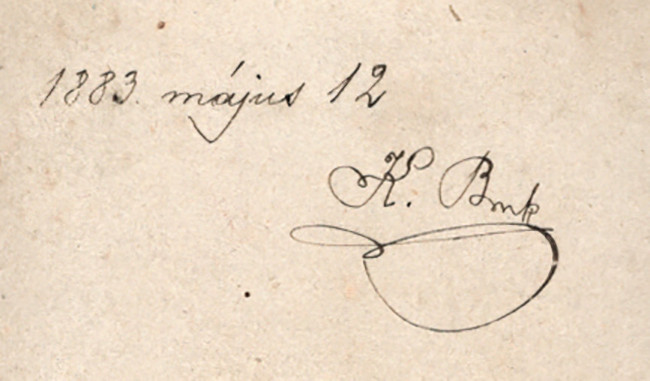 1883. május 12
K. Bmk